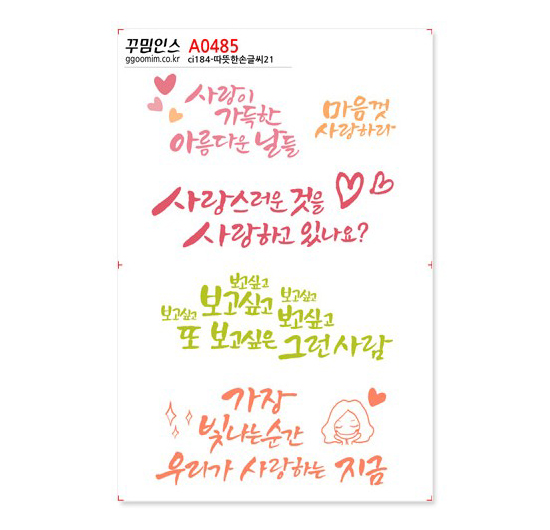 꾸밈인스 A0485
ggoomim.co.kr ci184-따뜻한손글씨21
사랑이
가득한
아름다운 날들
마음껏
사랑하라
사랑스러운 것을
사랑하고 있나요?
보고싶고
보고싶고 보고싶고 보고싶고
또 보고싶은 보고싶고
그런 사람
가장
빛나는 순간
우리가 사랑하는 지금